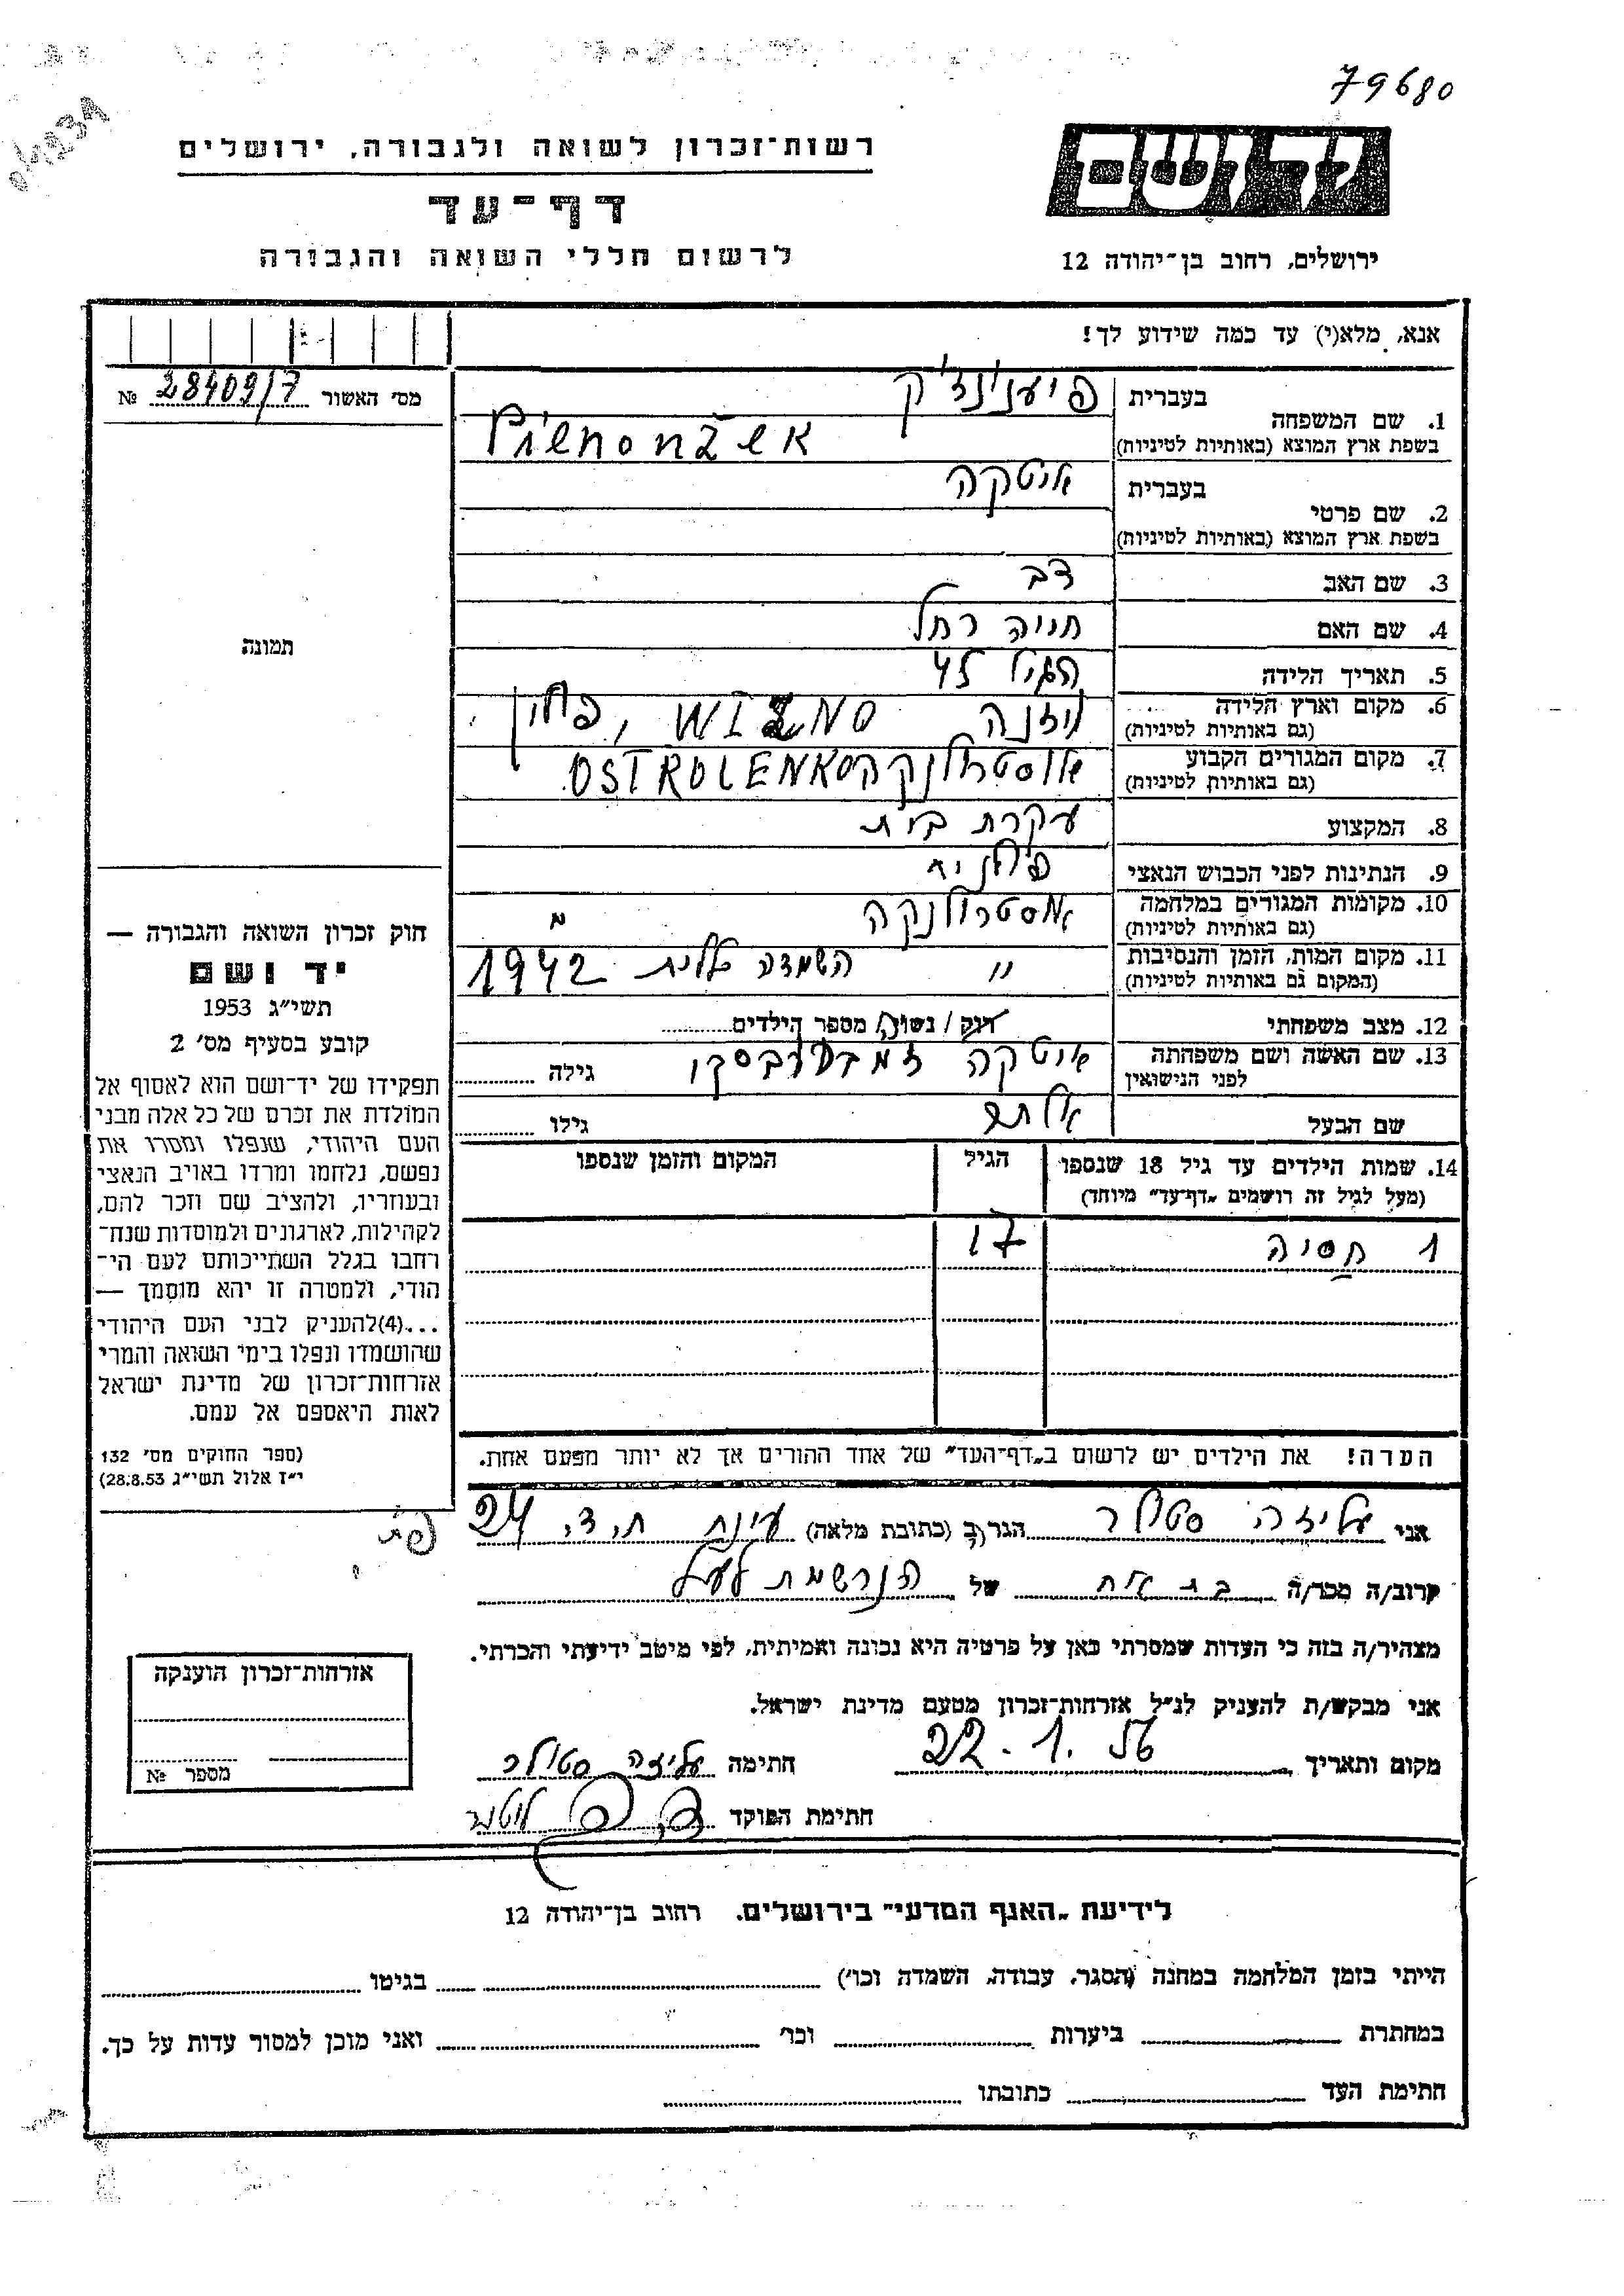 79680
רשות־זכרון לשואה ולגבורה, ירושלים
דף־עד
לרשום חללי השואה והגבורה
יד ושם
ירושלים, רחוב בן־יהודה 12
אנא, מלא(י) עד כמה שידוע לך!
מס׳ האשור 28409/7 №
תמונה
חוק זכרון השואה והגבורה —
יד ושם
תשי״ג 1953
קובע בסעיף מס׳ 2
תפקידו של יד־ושם הוא לאסוף אל
המולדת את זכרם של כל אלה מבני
העם היהודי, שנפלו ומסרו את
נפשם, נלחמו ומרדו באויב הנאצי
ובעוזריו, ולהציב שם וזכר להם,
לקהילות, לארגונים ולמוסדות שנח־
רחבו בגלל השתייכותם לעם הי־
הודי, ולמטרה זו יהא מוסמך —
...(4)להעניק לבני העם היהודי
שהושמדו ונפלו בימי השואה והמרי
אזרחות־זכרון של מדינת ישראל
לאות היאספם אל עמם.
(ספר החוקים מס׳ 132
י״ז אלול תשי״ג 28.8.53)
1. שם המשפחה בעברית
בשפת ארץ המוצא (באותיות לטיניות)
2. שם פרטי בעברית איטקה
בשפת ארץ המוצא (באותיות לטיניות)
3. שם האב דב
4. שם האם חניה רחל
5. תאריך הלידה הגיל 45
6. מקום וארץ הלידה ויזנה WIZNO, פולין
(גם באותיות לטיניות)
7. מקום המגורים הקבוע אוסטרולנקה OSTROLENKO
(גם באותיות לטיניות)
8. המקצוע עקרת בית
9. הנתינות לפני הכבוש הנאצי פולנית
10. מקומות המגורים במלחמה אוסטרולנקה
(גם באותיות לטיניות)
11. מקום המות, הזמן והנסיבות ״ השמדה כללית 1942
(המקום גם באותיות לטיניות)
12. מצב משפחתי רוק / נשוי/ה מספר הילדים
13. שם האשה ושם משפחתה איטקה גילה
לפני הנישואין
שם הבעל גילו
14. שמות הילדים עד גיל 18 שנספו הגיל המקום והזמן שנספו
(מעל לגיל זה רושמים „דף־עד״ מיוחד)
1 חסיה 17
הערה! את הילדים יש לרשום ב„דף־העד״ של אחד ההורים אך לא יותר מפעם אחת.
אני עליזה סטולר הגר/ה (כתובת מלאה) 24
קרוב/ה מכר/ה בת אח של הנרשמת לעיל
מצהיר/ה בזה כי העדות שמסרתי כאן על פרטיה היא נכונה ואמיתית, לפי מיטב ידיעתי והכרתי.
אני מבקש/ת להעניק לנ״ל אזרחות־זכרון מטעם מדינת ישראל.
מקום ותאריך 22.1.56 חתימה עליזה סטולר
חתימת הפוקד
אזרחות־זכרון הוענקה
מספר №
לידיעת „האגף המדעי״ בירושלים, רחוב בן־יהודה 12
הייתי בזמן המלחמה במחנה (הסגר, עבודה, השמדה וכו׳) בגיטו
במחתרת ביערות וכו׳ ואני מוכן למסור עדות על כך.
חתימת העד כתובתו